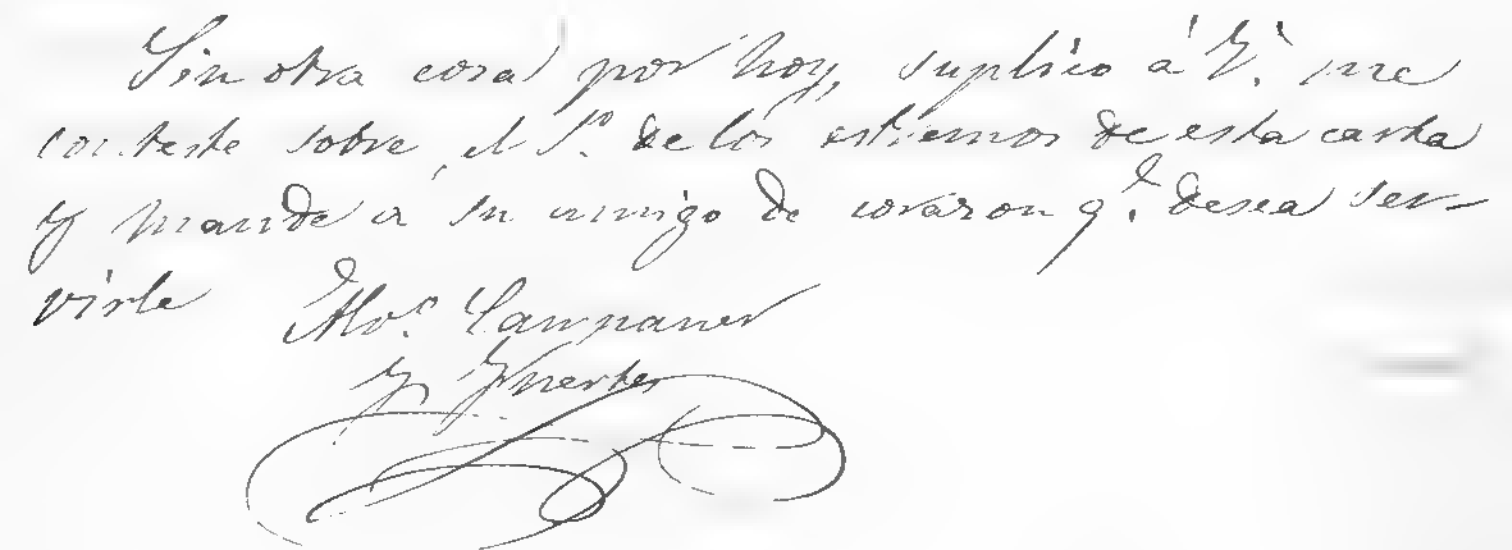 Sin otra cosa por hoy, suplico á V. me
conteste sobre el 1º. de los estremos de esta carta
y mande á su amigo de corazon q.e desea ser-
virle
Alv.o Campaner
y Fuertes